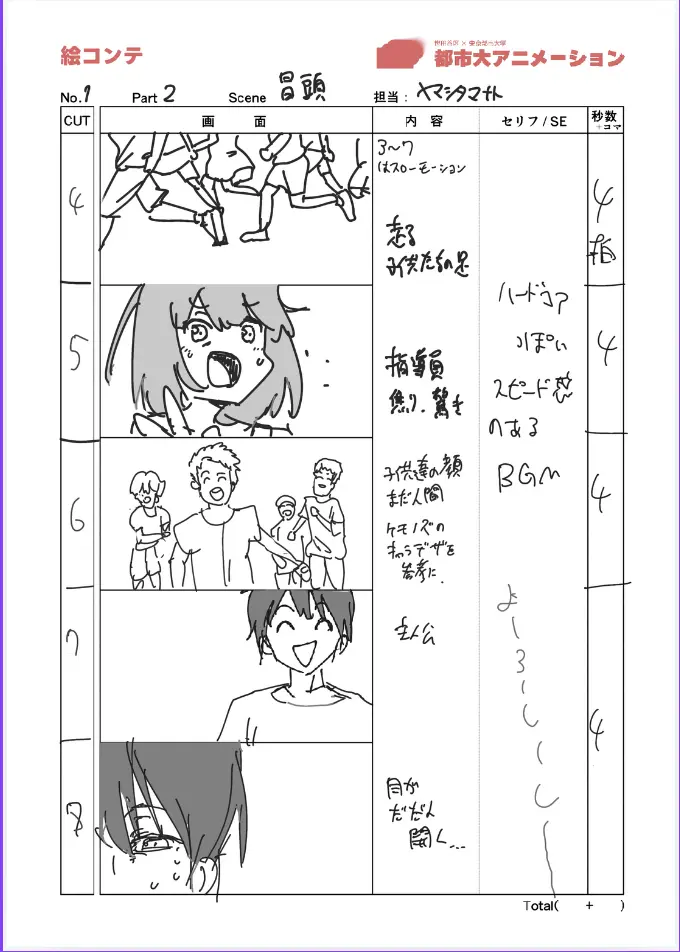 絵コンテ
世田谷区 × 東京都市大学
都市大アニメーション
No.1 Part 2 Scene 冒頭 担当: ヤマシタマサト
CUT 画 面 内 容 セリフ/SE 秒数
+コマ
4
3~7
はスローモーション
走る
子供たちの足
4
5
指導員
焦り、驚き
ハードコア
っぽい
スピード感
のある
BGM
4
6
子供達の顔
まだ人間
ケモノズの
キャラデザを
参考に.
4
7
主人公
よーろーしーくー
4
8
目が
だだん
開く…
Total( + )